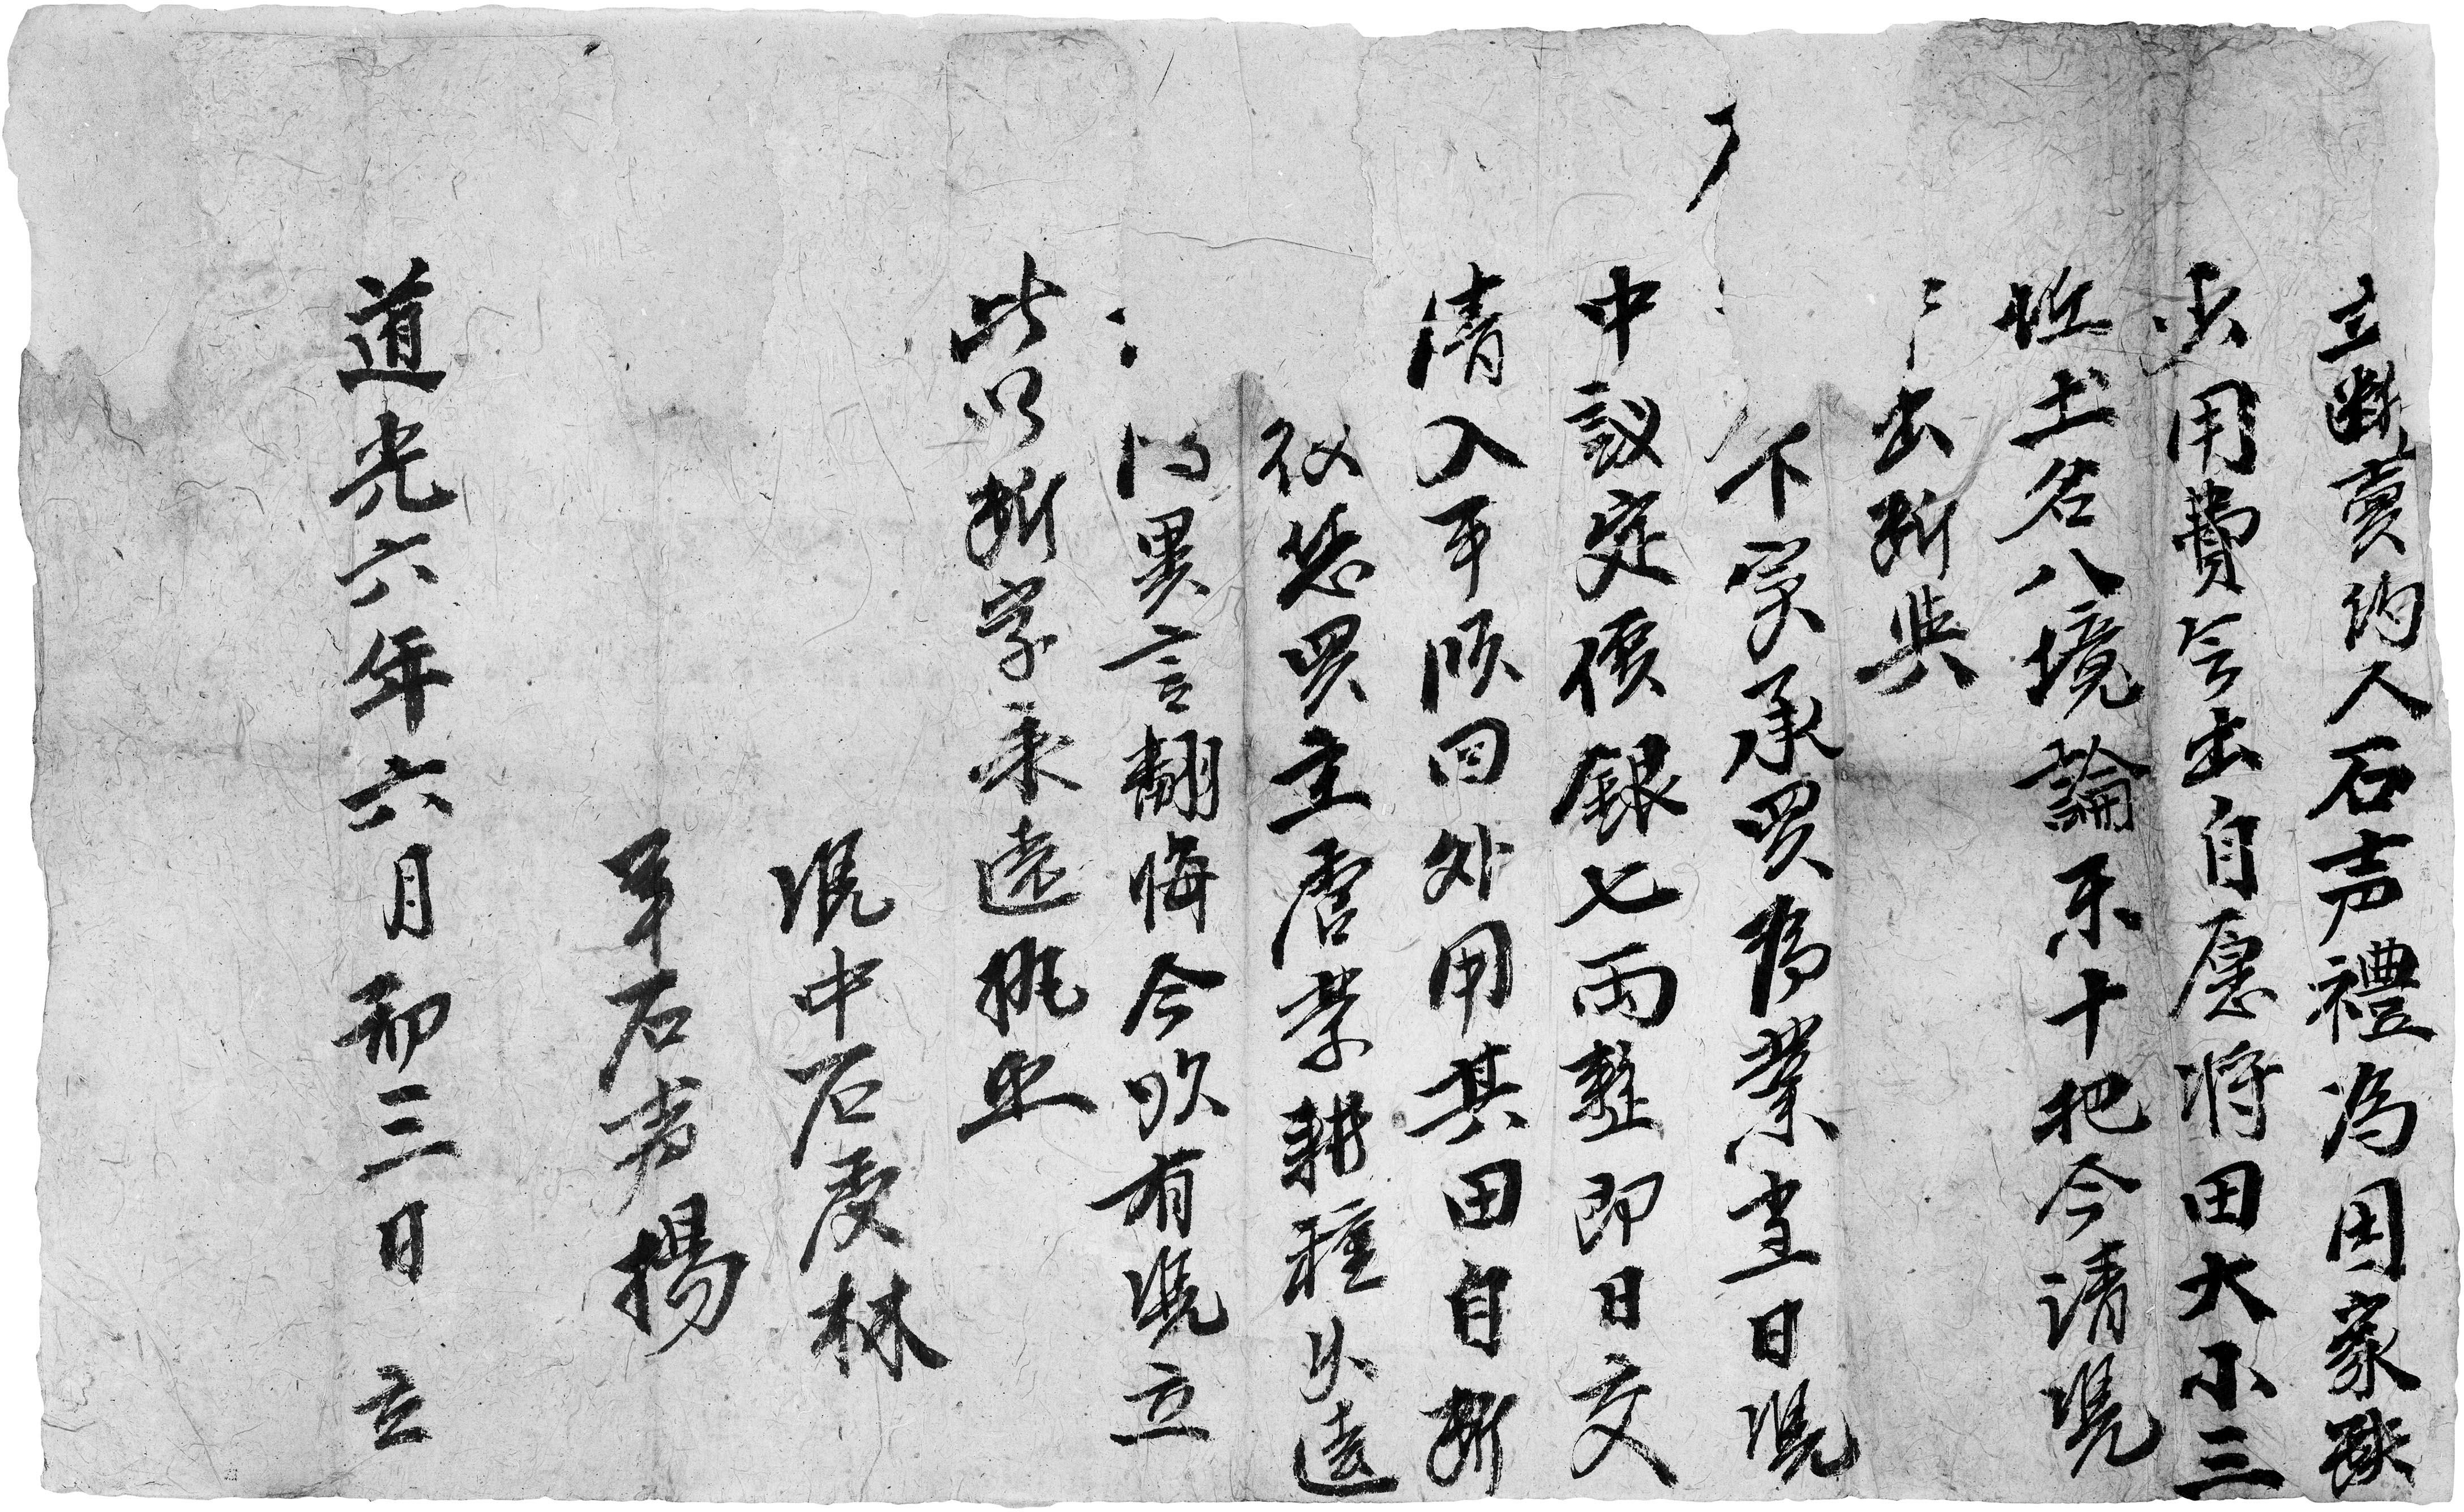 立斷賣約人石声禮為因家缺
少用費今出自愿将田大小三
坵土名八境論禾十把今请凭
出斷與
下字承買為業當日凭
中議定價銀七両整即日交
清入手領回外用其田自斷
仪慿買主官業耕種久遠
得異言翻悔今欲有凭立
此以斷字永遠執照
凭中石慶林
筆石声揚
道光六年六月初三日 立